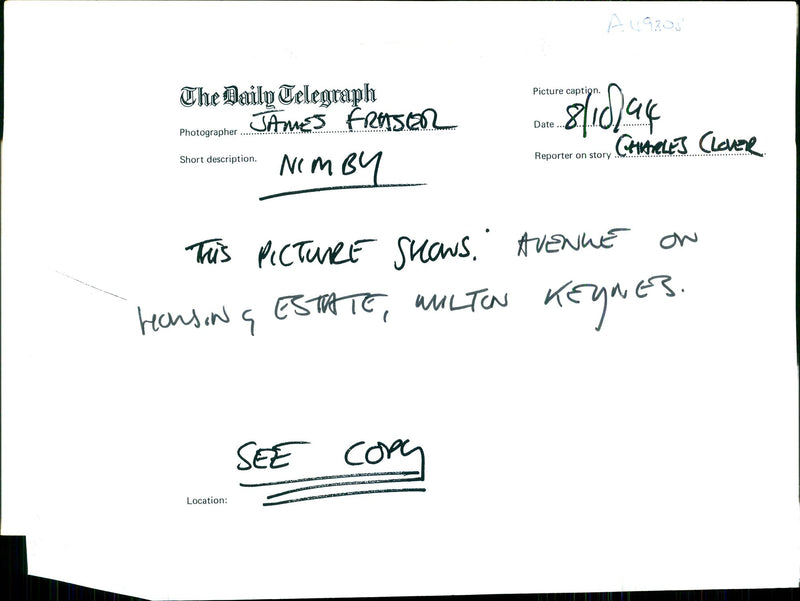 The Daily Telegraph
Picture caption.
Photographer JAMES FRASER
Date 8/10/94
Short description. NIMBY
Reporter on story CHARLES CLOVER
THIS PICTURE SHOWS: AVENUE ON
HOUSING ESTATE, MILTON KEYNES.
SEE COPY
Location: